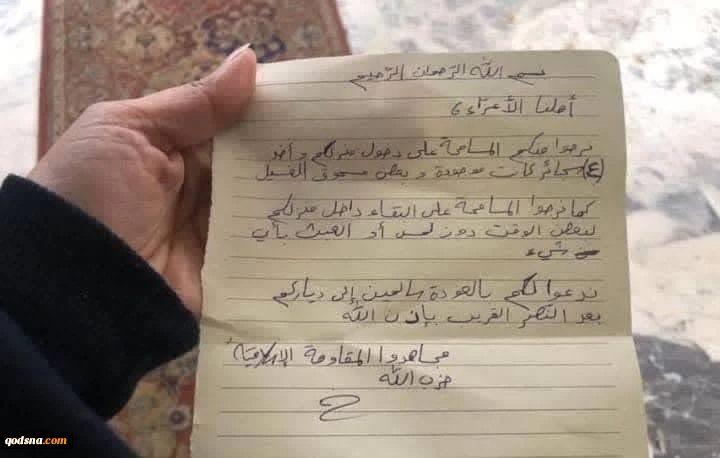 بسم الله الرحمان الرحيم
أهلنا الأعزاء،
نرجوا منكم المسامحة على دخول منزلكم وأخذ
(٤) سجائر كانت موجودة وبعض مسحوق الغسيل
كما نرجوا المسامحة على البقاء داخل منزلكم
لبعض الوقت دون لمس أو العبث بأي
شيء
ندعوا لكم بالعودة سالمين إلى دياركم
بعد النصر القريب بإذن الله
مجاهدوا المقاومة الإسلامية
حزب الله
qodsna.com